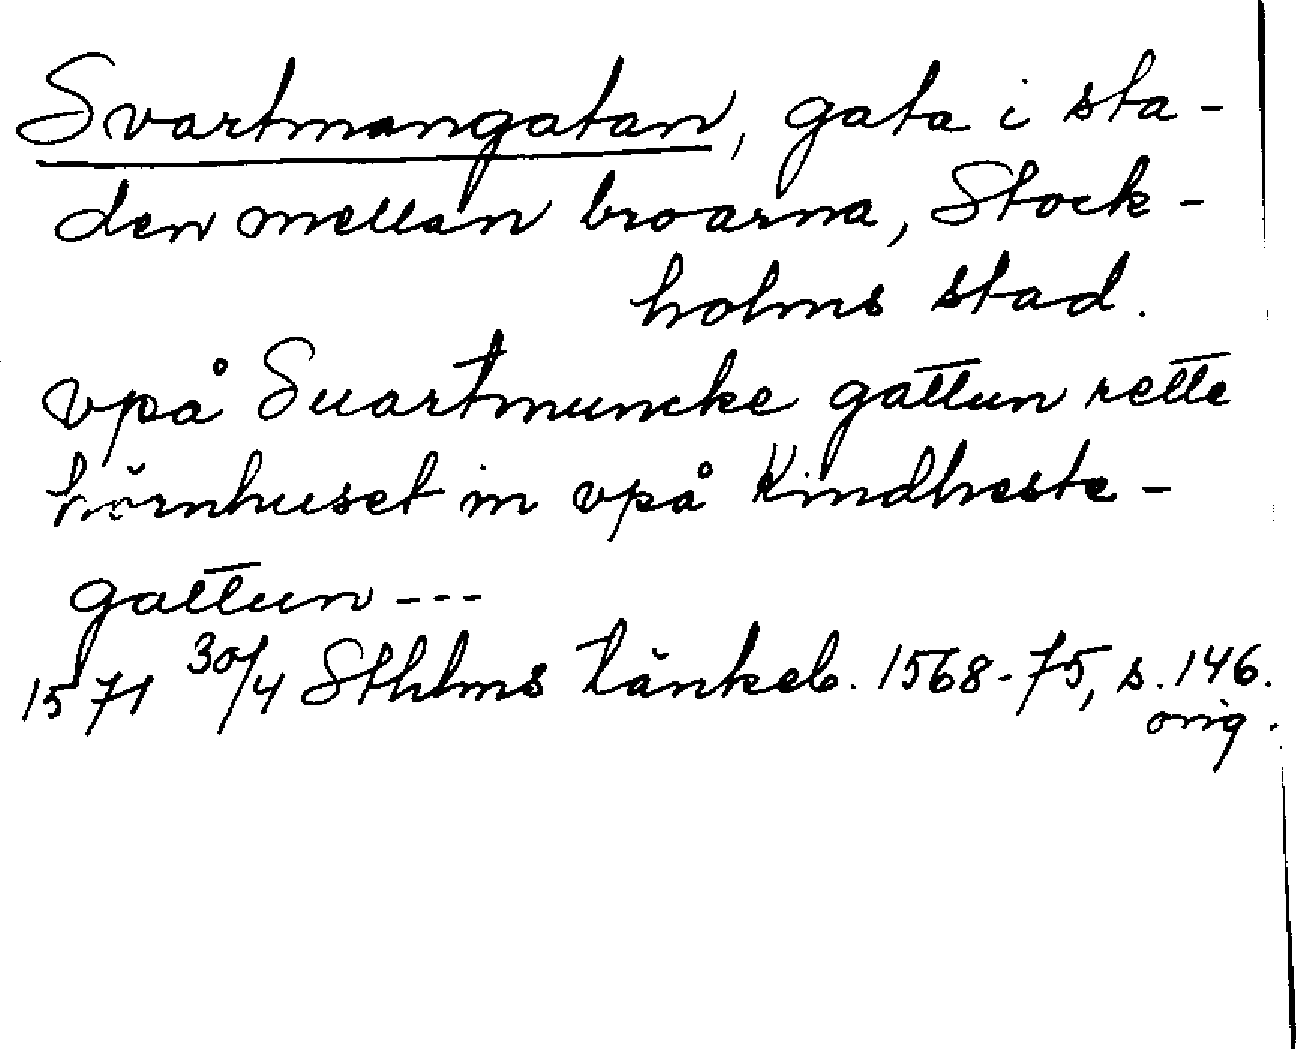 Svartmangatan, gata i sta-
den mellan broarna, Stock-
holms stad.
vpå Suartmuncke gattun rette
hörnhuset in vpå Kindheste-
gattun ---
1571 30/4 Sthlms tänkeb. 1568-75, s. 146.
orig.